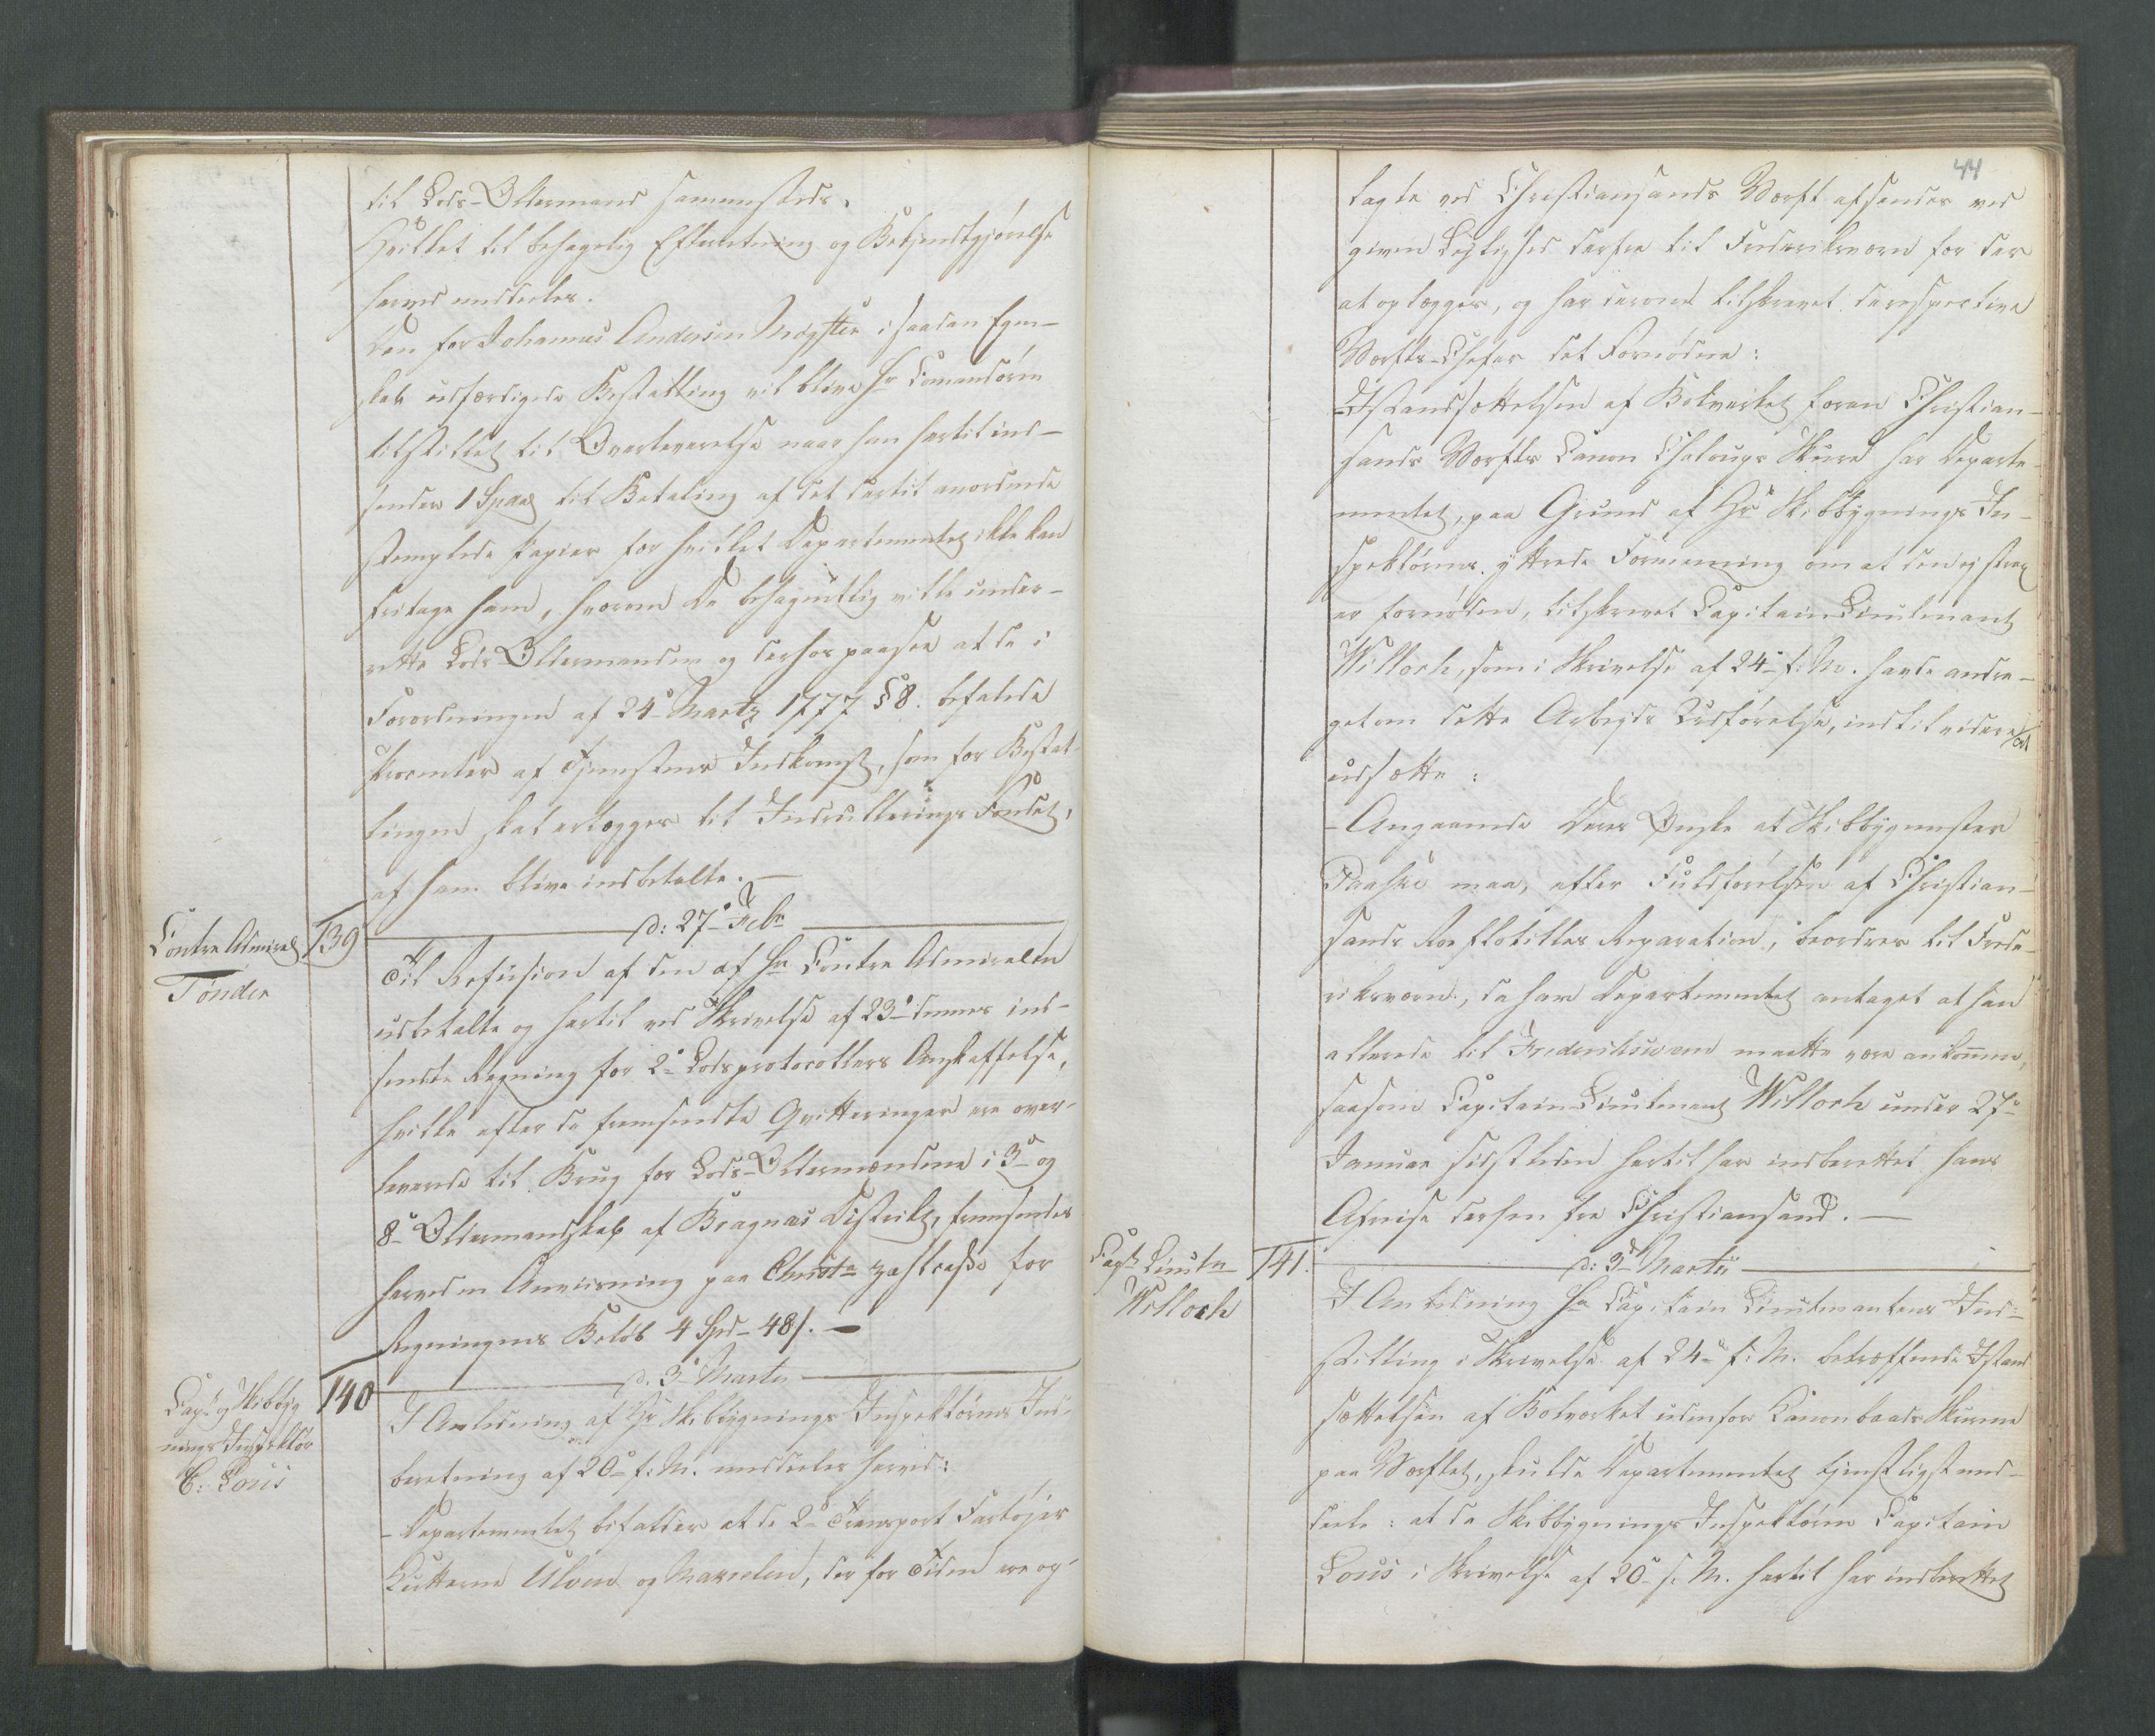 til Lods-Oldermand sammesteds.
Hvilket til behagelig Efterretning og Bekjendtgjørelse
herved meddeles.
Den for Johannes Andersen Mogster i saadan Egen-
skab udfærdigede Bestalling vil blive Hr Comandøren
tilstillet til Overleverelse naar han hertil ind-
sender 1 Spd til Betaling af det dertil anordnede
stemplede Papier for hvilket Departementet ikke kan
fritage ham, hvorom De behageligtlig ville under-
rette Lods-Oldermanden og derhos paasee at de i
Forordningen af 24de Martz 1777 § 8. befalede
Procenter af Tjenestens Indkomst, som for Bestal-
lingen skal erlægges til Indrulleringsfondet,
af ham blive indbetalte. —
Contre Admiral
Tønder
139
d: 27de Febr
Til Refusion af den af Hr Contre Admiralen
udbetalte og hertil ved Skrivelse af 23de dennes ind-
sendte Regning for 2de Lodsprotocollers Anskaffelse,
hvilke efter de fremsendte Qvitteringer ere over-
leverede til Brug for Lods-Oldermændene i 3de og
8de Oldermandskab af Bragnæs Distrikt, fremsendes
herved en Anviisning paa Christa Zahlcasse for
Regningens Beløb 4 Spd – 48 s. —
Capt og Skibbyg
nings Inspektør
C: Louis
140
d. 3de Martii
I Anledning af Hr Skibbygnings Inspektørens Ind-
beretning af 20de f: M. meddeles herved:
– Departementet bifalder at de 2de Transport Fartøjer
Kutterne Ulven og Makrelen, der for Tiden ere op-
44
lagte ved Christiansands Værft afsendes ved
given Leylighed derfra til Frideriksværn for der
at oplægges, og har derom tilskrevet de respective
Værfts-Chefer det Fornødne:
– Istandsættelsen af Bolværket foran Christian-
sands Værfts Canon Chaloups Skure har Departe-
mentet, paa Grund af Hr Skibbygnings In-
spektørens yttrede Formening om at den ej strax
er fornøden, tilskrevet Capitain Lieutenant
Willoch, som i Skrivelse af 24de f: M. havde andra-
get om dette Arbejds Udførelse, indtil videre at
udsætte:
– Angaaende Deres Ønske at Skibbygmester
Paaske maa, efter Fuldførelsen af Christian-
sands Roeflotilles Reparation, beordres til Frede-
riksværn, da har Departementet antaget at han
allerede til Frederiksværn maatte være ankommen,
saasom Capitain Lieutenant Willoch under 27de
Januar sidstleden hertil har indberettet hans
Afreise derhen fra Christiansand. —
Capt Lieutn
Willoch
141.
d: 3de Martii
I Anledning Hr Capitain Lieutenantens Ind-
stilling i Skrivelse af 24de f: M. betræffende Istand
sættelsen af Bolværket udenfor Kanonbaads Skurene
paa Værftet, skulde Departementet tjenstligst med-
dele: at da Skibbygnings Inspektøren Capitain
Louis i Skrivelse af 20de s. M. hertil har indberettet